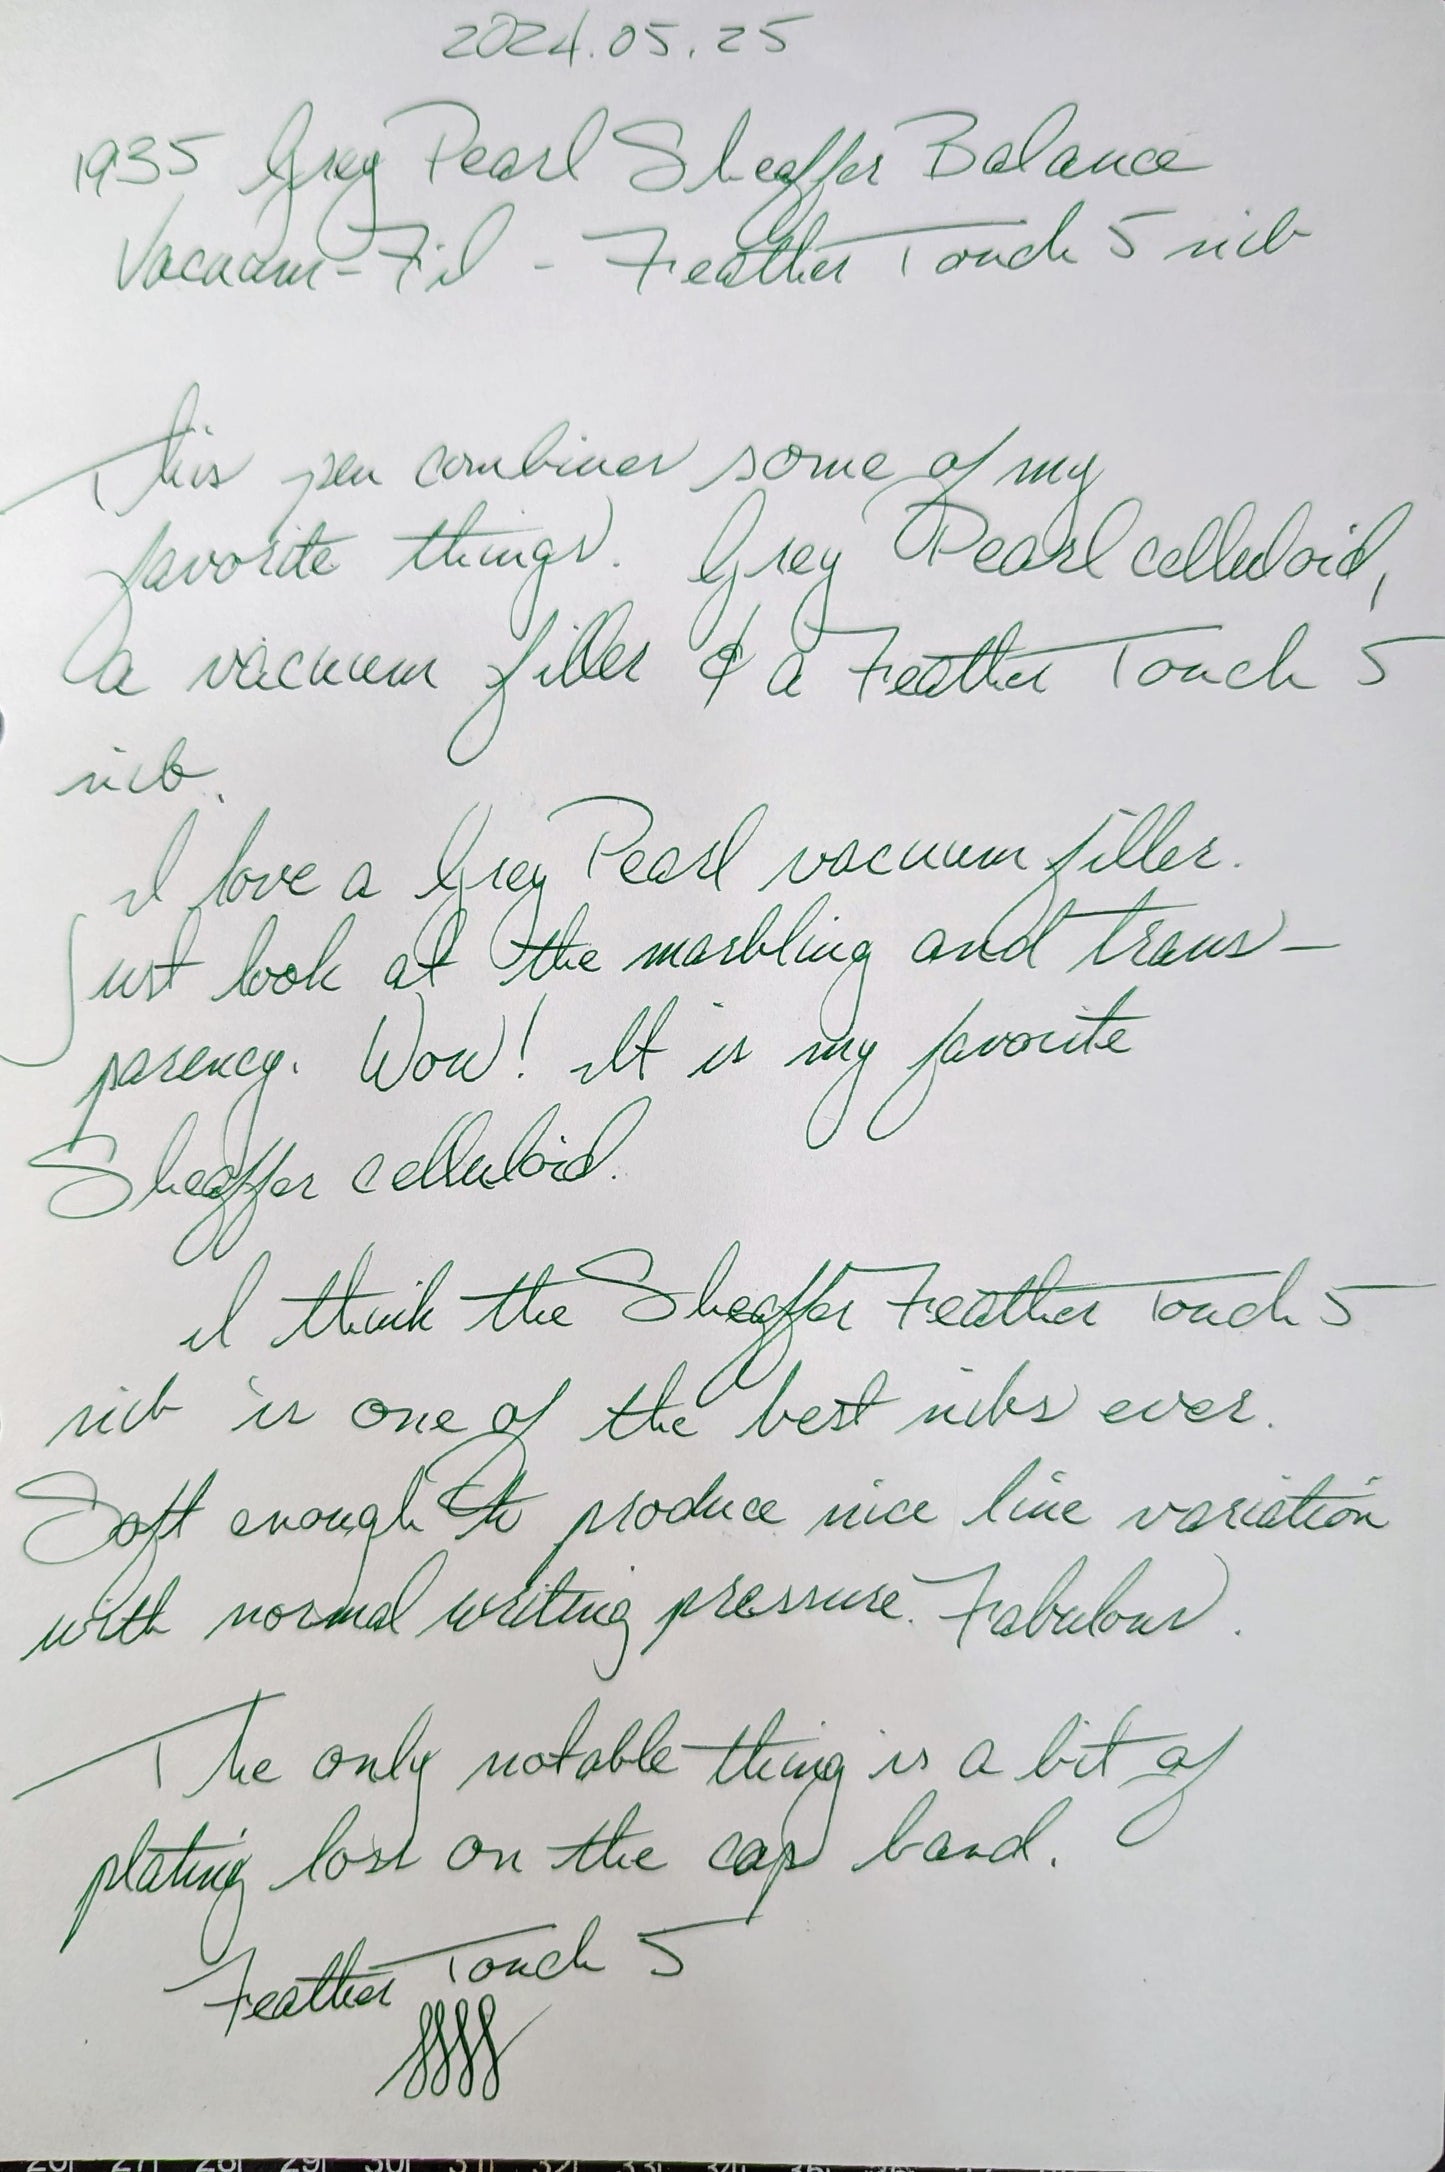 2024.05.25
1935 Grey Pearl Sheaffer Balance
Vacuum-Fil - Feather Touch 5 nib
This pen combines some of my
favorite things. Grey Pearl celluloid,
a vacuum filler & a Feather Touch 5
nib.
I love a Grey Pearl vacuum filler.
Just look at the marbling and trans-
parency. Wow! It is my favorite
Sheaffer celluloid.
I think the Sheaffer Feather Touch 5
nib is one of the best nibs ever.
Soft enough to produce nice line variation
with normal writing pressure. Fabulous.
The only notable thing is a bit of
plating loss on the cap band.
Feather Touch 5
26 27 28 29 30 31 32 33 34 35 36